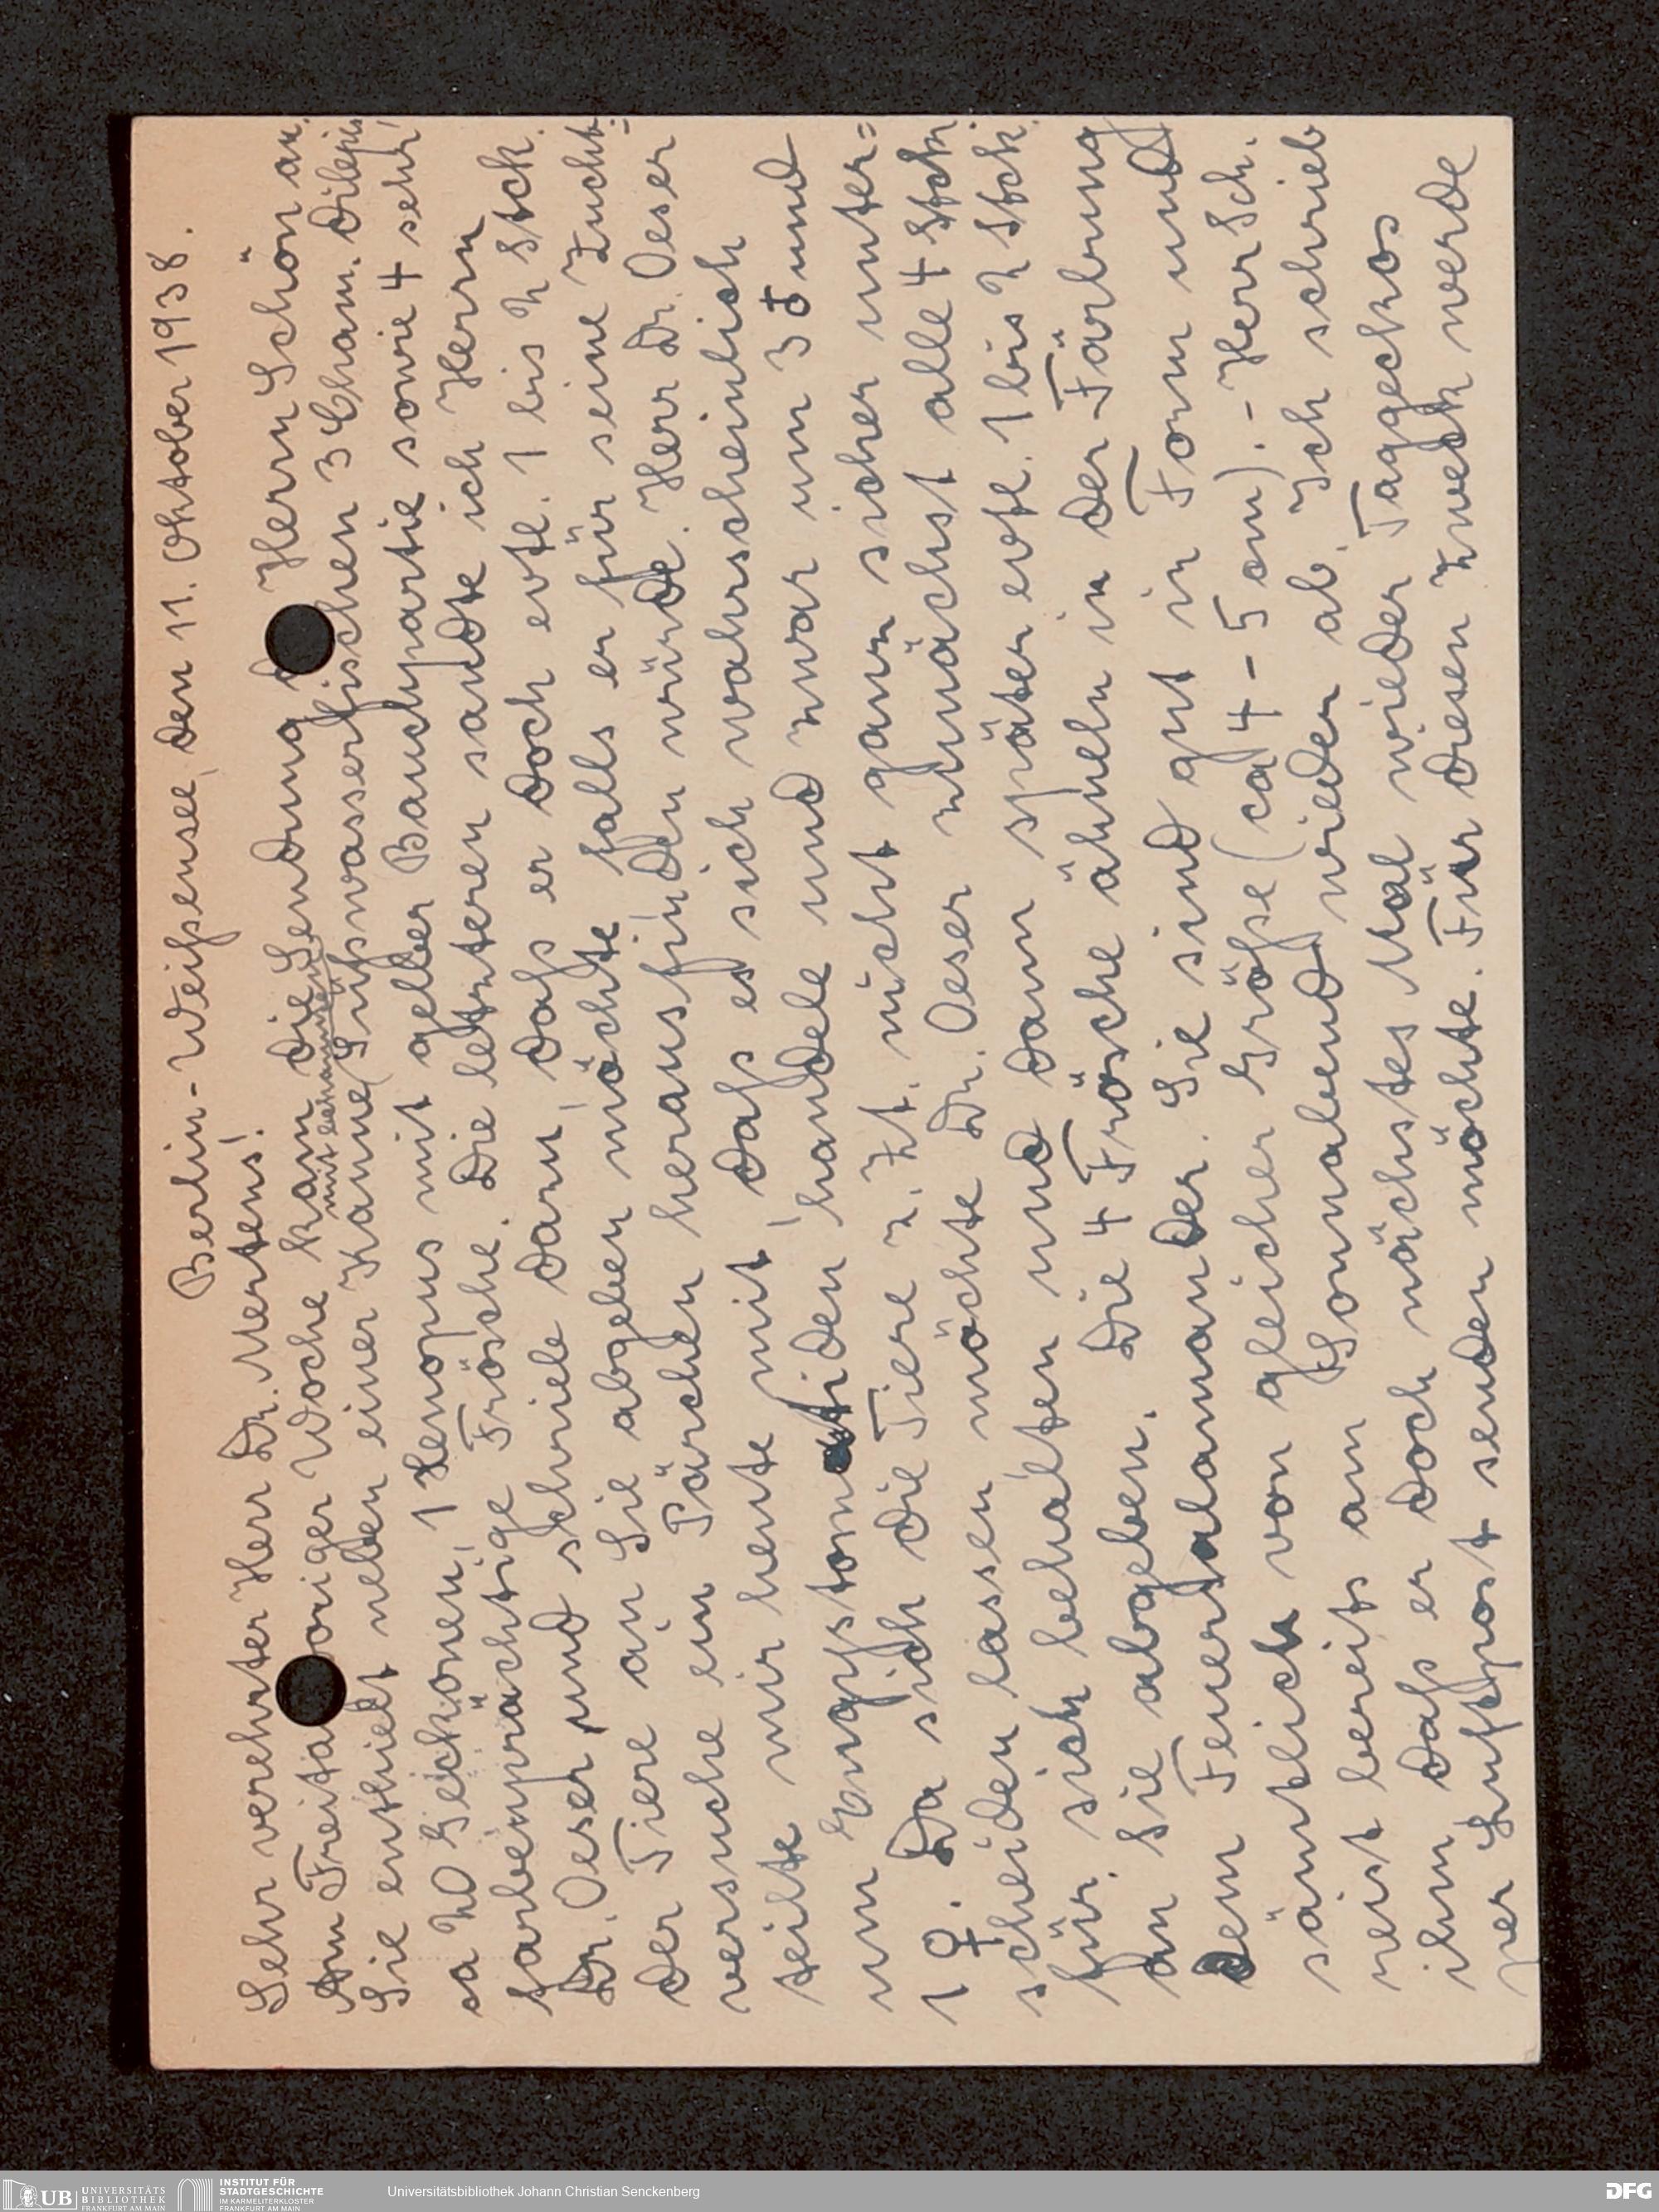 Berlin-Weißensee, den 11. Oktober 1938.
Sehr verehrter Herr Dr. Mertens!
Am Freitag voriger Woche kam die Sendung d. Herrn Schön an.
Sie enthielt neben einer Kanne Süßwasserfischen 3 Cham. dilepis
ca 20 Geckonen, 1 Xenopus mit gelber Bauchpartie sowie 4 sehr
farbenprächtige Frösche. Die letzteren sandte ich Herrn
Dr. Oeser und schrieb darn, daß er doch evtl. 1 bis 2 Stck.
der Tiere an Sie abgeben möchte falls er für seine Zucht=
versuche ein Pärchen herausfinden würde. Herr Dr. Oeser
teilte mir heute mit, daß es sich wahrscheinlich
um Engystomatiden handele und zwar um 3 ♂ und
1 ♀. Da sich die Tiere z. Zt. nicht ganz sicher unter=
scheiden lassen möchte Dr. Oeser zunächst alle 4 Stck.
für sich behalten und dann später evtl. 1 bis 2 Stck.
an Sie abgeben. Die 4 Frösche ähneln in der Färbung
dem Feuersalamander. Sie sind gut in Form und
sämtlich von gleicher Größe (ca 4-5 cm). - Herr Sch.
reist bereits am Sonnabend wieder ab. Ich schrieb
ihm daß er doch nächstes Mal wieder Taggeckos
per Luftpost senden möchte. Für diesen Zweck werde
UB UNIVERSITÄTS BIBLIOTHEK FRANKFURT AM MAIN
INSTITUT FÜR STADTGESCHICHTE IM KARMELITERKLOSTER FRANKFURT AM MAIN
Universitätsbibliothek Johann Christian Senckenberg
DFG